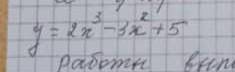 y = 2x³ - 3x² + 5
работы вып